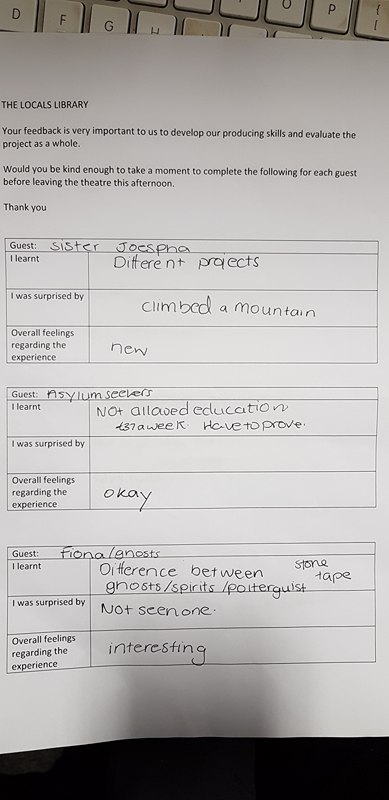 D F G H O P { [
THE LOCALS LIBRARY
Your feedback is very important to us to develop our producing skills and evaluate the
project as a whole.
Would you be kind enough to take a moment to complete the following for each guest
before leaving the theatre this afternoon.
Thank you
Guest: Sister Joespha
I learnt Different projects
I was surprised by climbed a mountain
Overall feelings
regarding the new
experience
Guest: Asylum seekers
I learnt Not allowed education
£37 a week. Have to prove.
I was surprised by
Overall feelings
regarding the okay
experience
Guest: Fiona/ghosts
I learnt Difference between stone tape
ghosts/spirits/poltergwst
I was surprised by Not seen one.
Overall feelings
regarding the interesting
experience